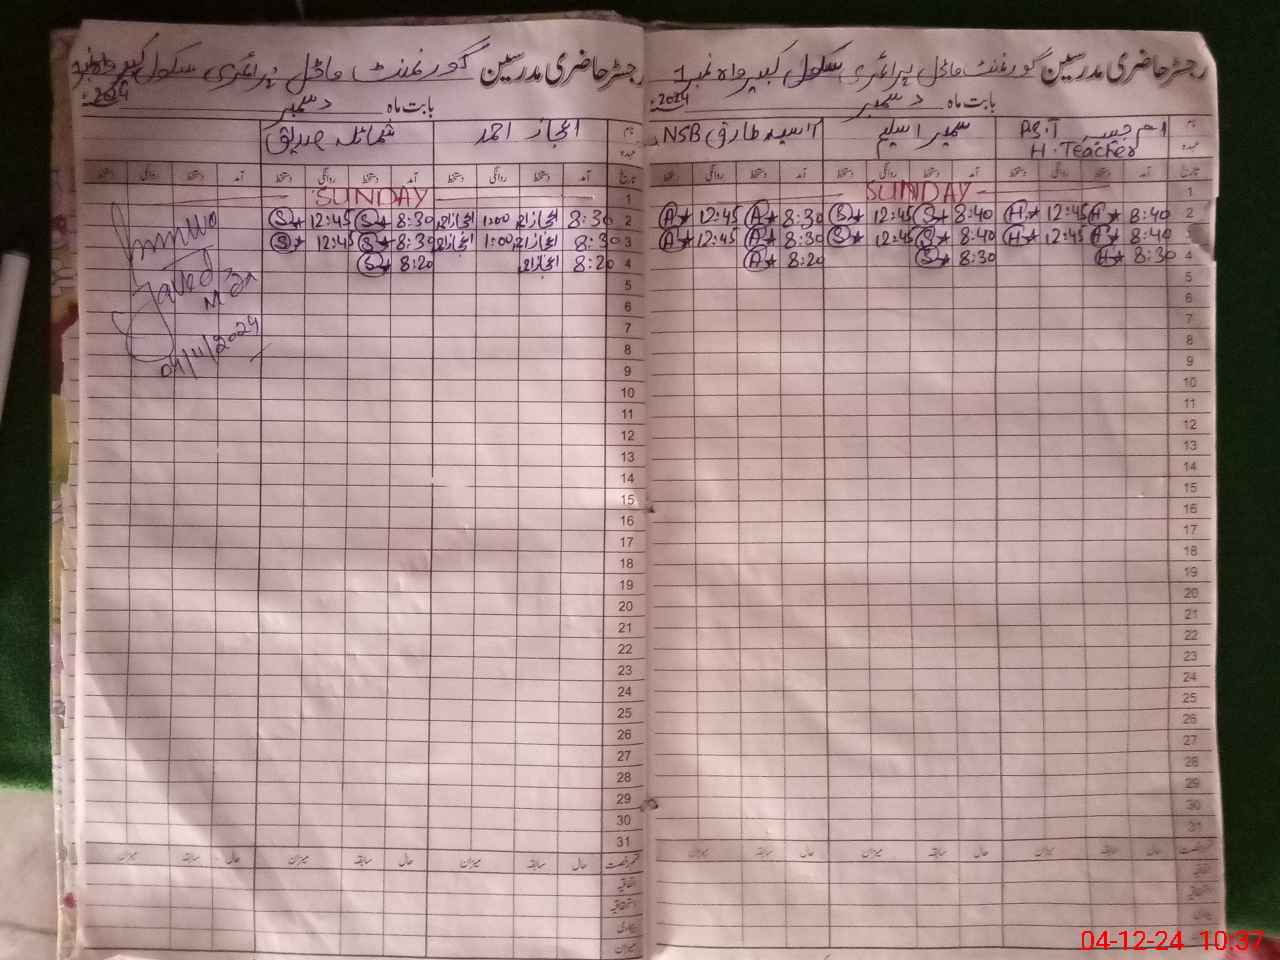 رجسٹر حاضری مدرسین گورنمنٹ ماڈل پرائمری سکول کبیر واہ نمبر 1
بابت ماہ دسمبر 2024
نام
عہدہ
P.S.T
H. Teacher
سمیر اسلیم
آسیہ طارق NSB
تاریخ آمد دستخط روانگی دستخط آمد دستخط روانگی دستخط آمد دستخط روانگی دستخط
1 SUNDAY
2 8:40 H 12:45 H 8:40 S 12:45 S 8:30 A 12:45 A
3 8:40 H 12:45 H 8:40 S 12:45 S 8:30 A 12:45 A
4 8:30 H 8:30 S 8:20 A
5
6
7
8
9
10
11
12
13
14
15
16
17
18
19
20
21
22
23
24
25
26
27
28
29
30
31
حال سابقہ میزان حال سابقہ میزان حال سابقہ میزان
رجسٹر حاضری مدرسین گورنمنٹ ماڈل پرائمری سکول کبیر واہ نمبر 1
بابت ماہ دسمبر 2024
اعجاز احمد
شمائلہ صدیق
تاریخ آمد دستخط روانگی دستخط آمد دستخط روانگی دستخط آمد دستخط روانگی دستخط
1 SUNDAY
2 8:30 اعجاز 1:00 اعجاز 8:30 S 12:45 S
3 8:30 اعجاز 1:00 اعجاز 8:30 S 12:45 S
4 8:20 اعجاز 8:20 S
5
6
7
8
9
10
11
12
13
14
15
16
17
18
19
20
21
22
23
24
25
26
27
28
29
30
31
Javed
04/11/2024
حال سابقہ میزان حال سابقہ میزان حال سابقہ میزان
اتفاقیہ
استحقاقیہ
بیماری
میزان
04-12-24 10:37